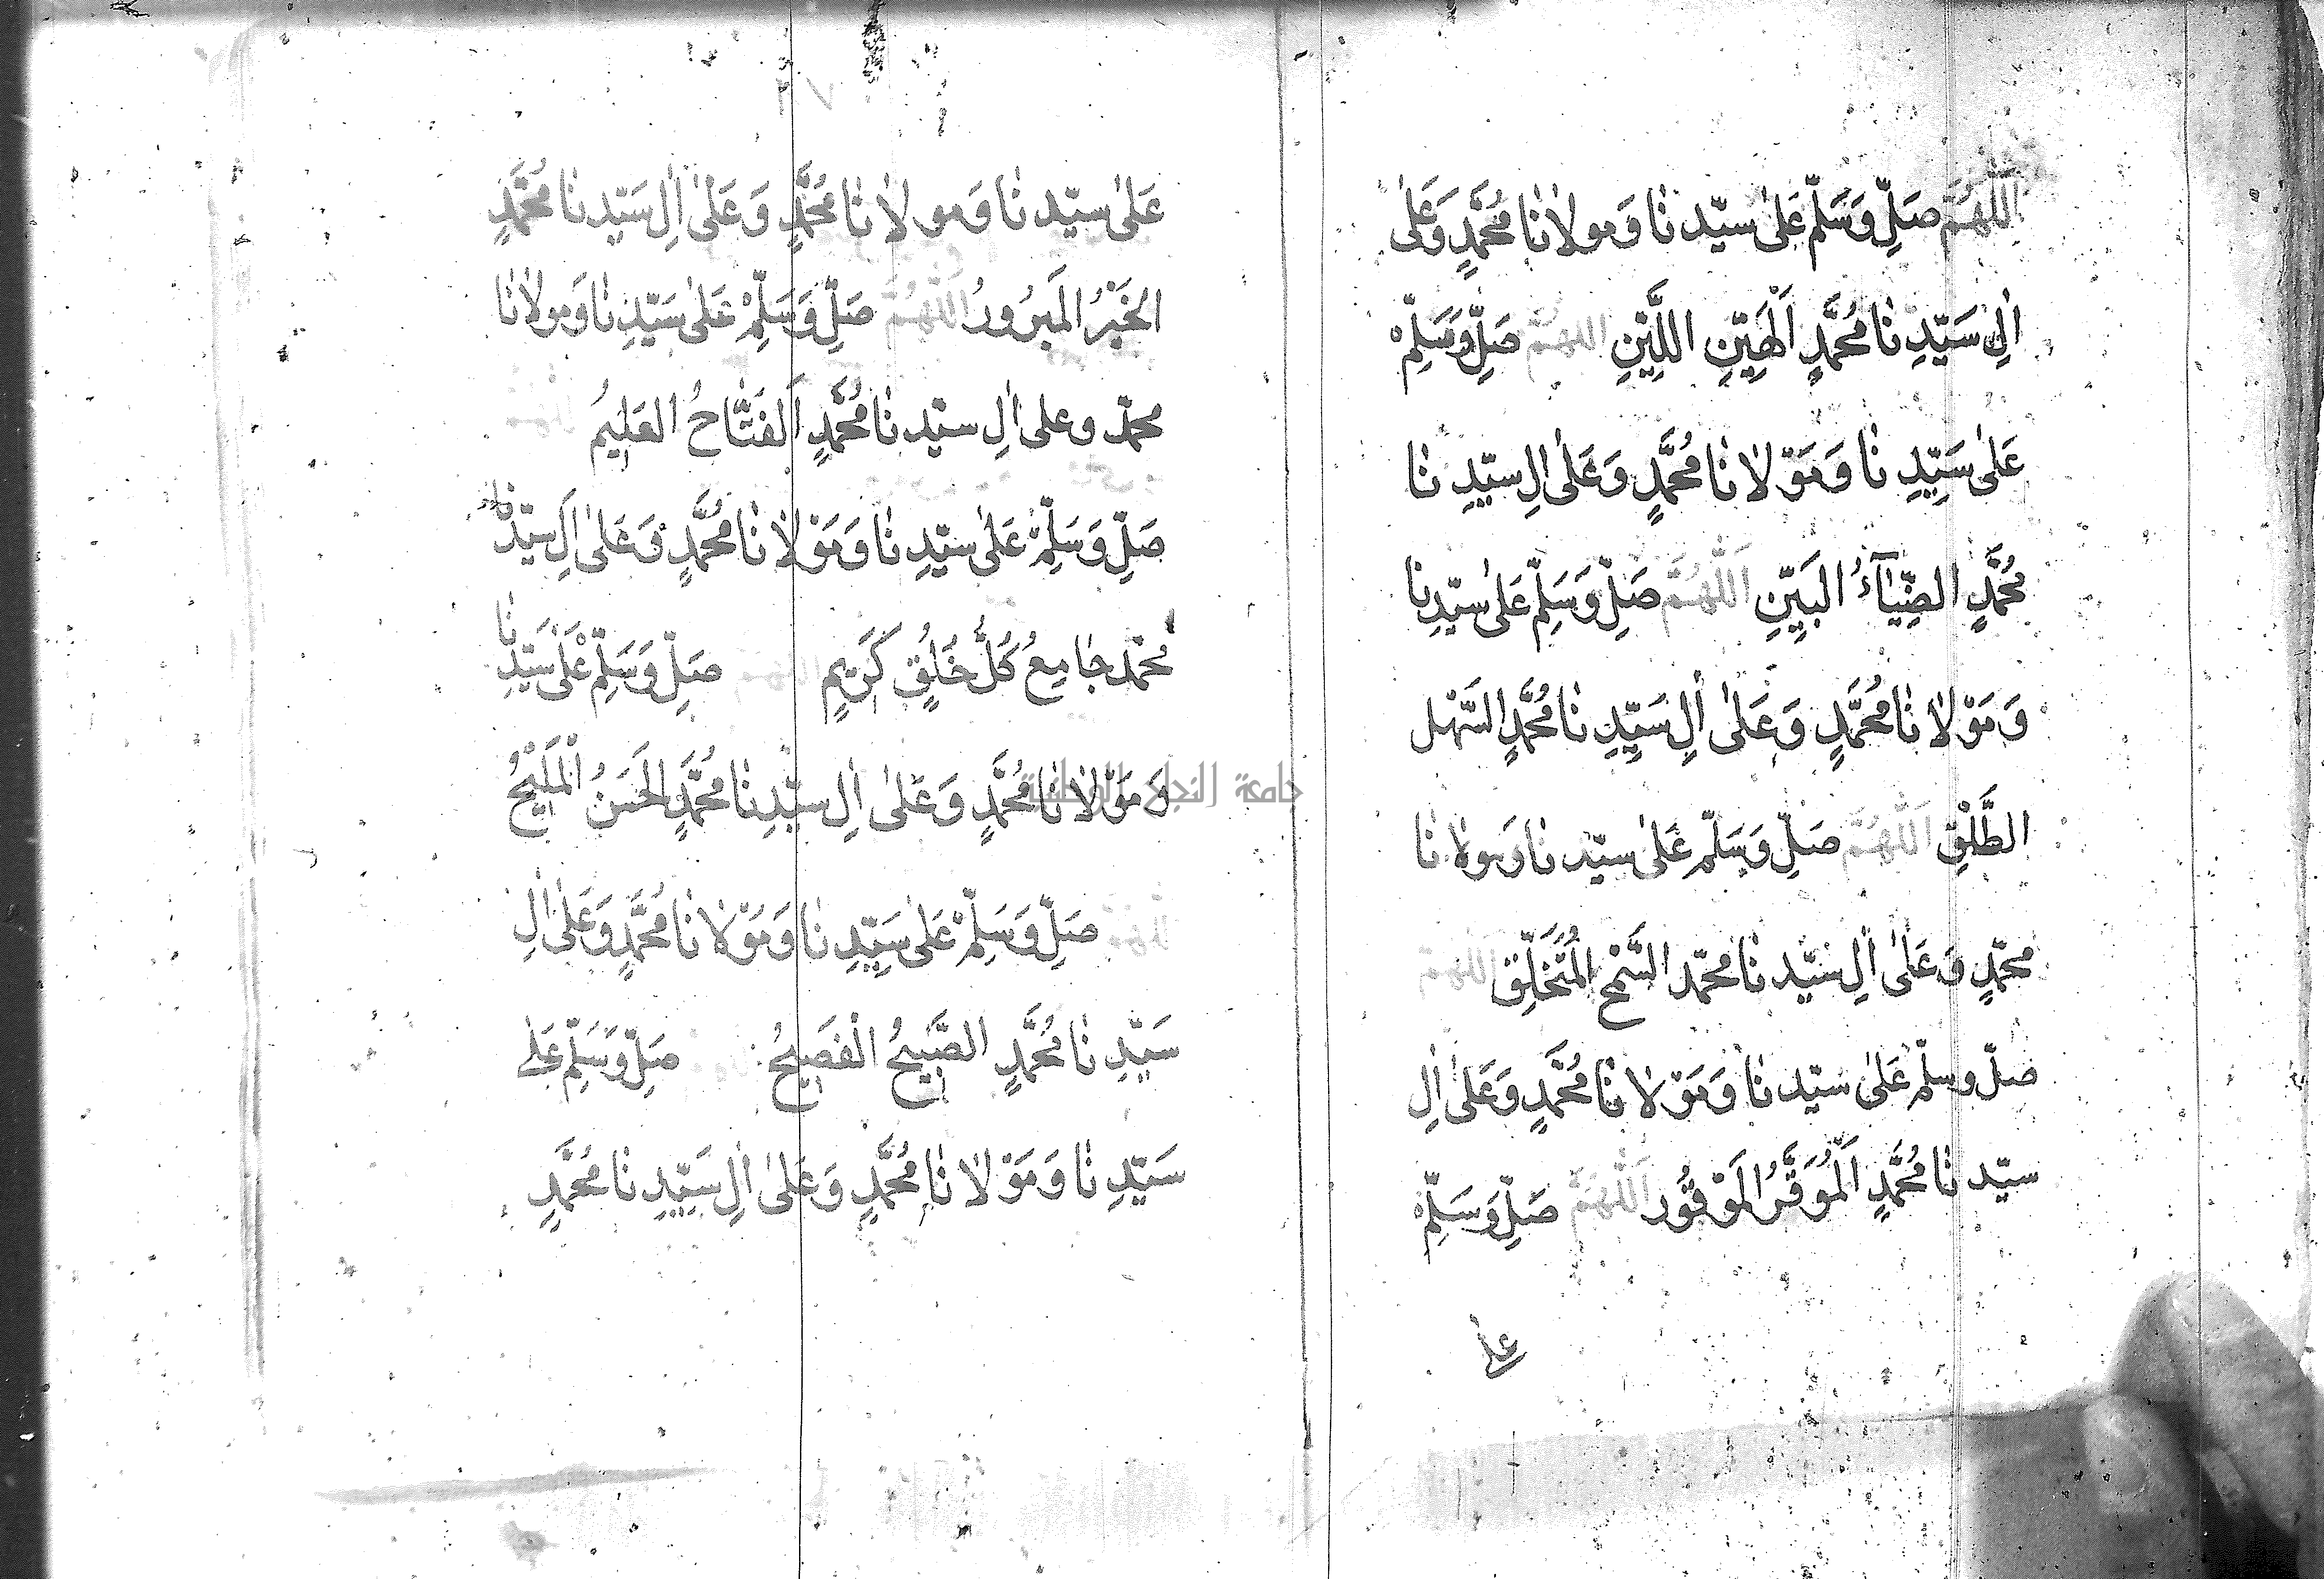 اللهُمَّ صَلِّ وَسَلِّم عَلىٰ سيّدنا وَمولانا مُحَمَّدٍ وَعَلىٰ
اٰلِ سَيّدِنا مُحَمَّدٍ اَلْهَيِّنِ اللَّيِّنِ اللهمّ صَلِّ وَسَلِّمْ
عَلىٰ سَيِّدِنا وَمَوْلانا مُحَمَّدٍ وَعَلىٰ اٰلِ سيّدِنا
مُحَمَّدٍ الضِّيَآءُ البَيِّنِ اَللّٰهُمَّ صَلِّ وَسَلِّم عَلىٰ سيّدِنا
وَمَوْلانا مُحَمَّدٍ وَعَلىٰ اٰلِ سَيِّدِنا مُحَمَّدٍ السَّهْل
الطَّلْقِ اَللّٰهُمَّ صَلِّ وَسَلِّم عَلىٰ سيّدنا وَمولانا
محمّدٍ وَعَلىٰ اٰلِ سيّدنا محمّد السَّمْحِ المُتَخَلِّقِ اللّهمّ
صلّ وسلّم عَلىٰ سيّدنا وَمَوْلانا مُحَمَّدٍ وَعَلىٰ اٰلِ
سيّدنا مُحَمَّدٍ اَلْمُوَقَّرُ المَوْقُور اَللّٰهُمَّ صَلِّ وَسَلِّمْ
على
عَلىٰ سيّدنا وَمولانا مُحَمَّدٍ وَعَلىٰ اٰلِ سَيّدنا مُحَمَّدٍ
الخَيْرُ المَبرُورُ اللّٰهُمَّ صَلِّ وَسَلِّمْ عَلىٰ سَيّدِنا وَمولانا
محمّد وعلى اٰلِ سيّدنا مُحَمَّدٍ اَلفَتَّاحُ العَلِيمُ
صَلِّ وَسَلِّمْ عَلىٰ سيّدِنا وَمَوْلانا مُحَمَّدٍ وَعَلىٰ اٰلِ سَيّدنا
محمّد جامِعُ كُلُّ خَلُقٍ كَرِيمٍ صَلِّ وَسَلِّمْ عَلىٰ سَيّدِنا
وَمَوْلانا مُحَمَّدٍ وَعَلىٰ اٰلِ سيّدِنا مُحَمَّدٍ الحَسَنُ الْمَلِيْحُ
صَلِّ وَسَلِّمْ عَلىٰ سَيّدِنا وَمَوْلانا مُحَمَّدٍ وَعَلىٰ اٰلِ
سَيّدِنا مُحَمَّدٍ الصَّبِيحُ الْفَصِيحُ صَلِّ وَسَلِّمْ عَلى
سَيّدِنا وَمَوْلانا مُحَمَّدٍ وَعَلىٰ اٰلِ سَيِّدِنا مُحَمَّدٍ
جامعة النجاح الوطنية